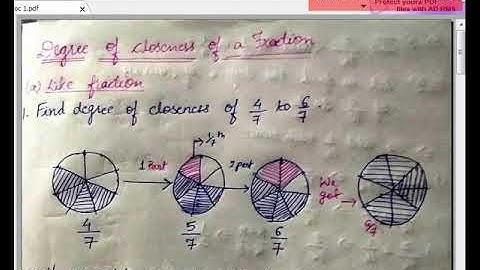 oc 1.pdf
Protect your PDF
files with AD RMS
Degree of closeness of a Fraction
(a) Like fraction
1. Find degree of closeness of 4/7 to 6/7.
1/7 th
1 Part
2 part
We
get
4/7
5/7
6/7
6/7